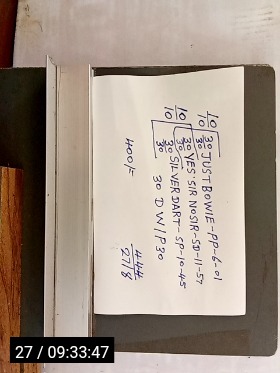 10/10 30/30 JUSTBOWIE-PP-6-01
10/10 30/30 YES SIR NOSIR-SD-11-57
30/30 SILVERDART-SP-10-45
30 D W/P30
400/=
27/8
27 / 09:33:47